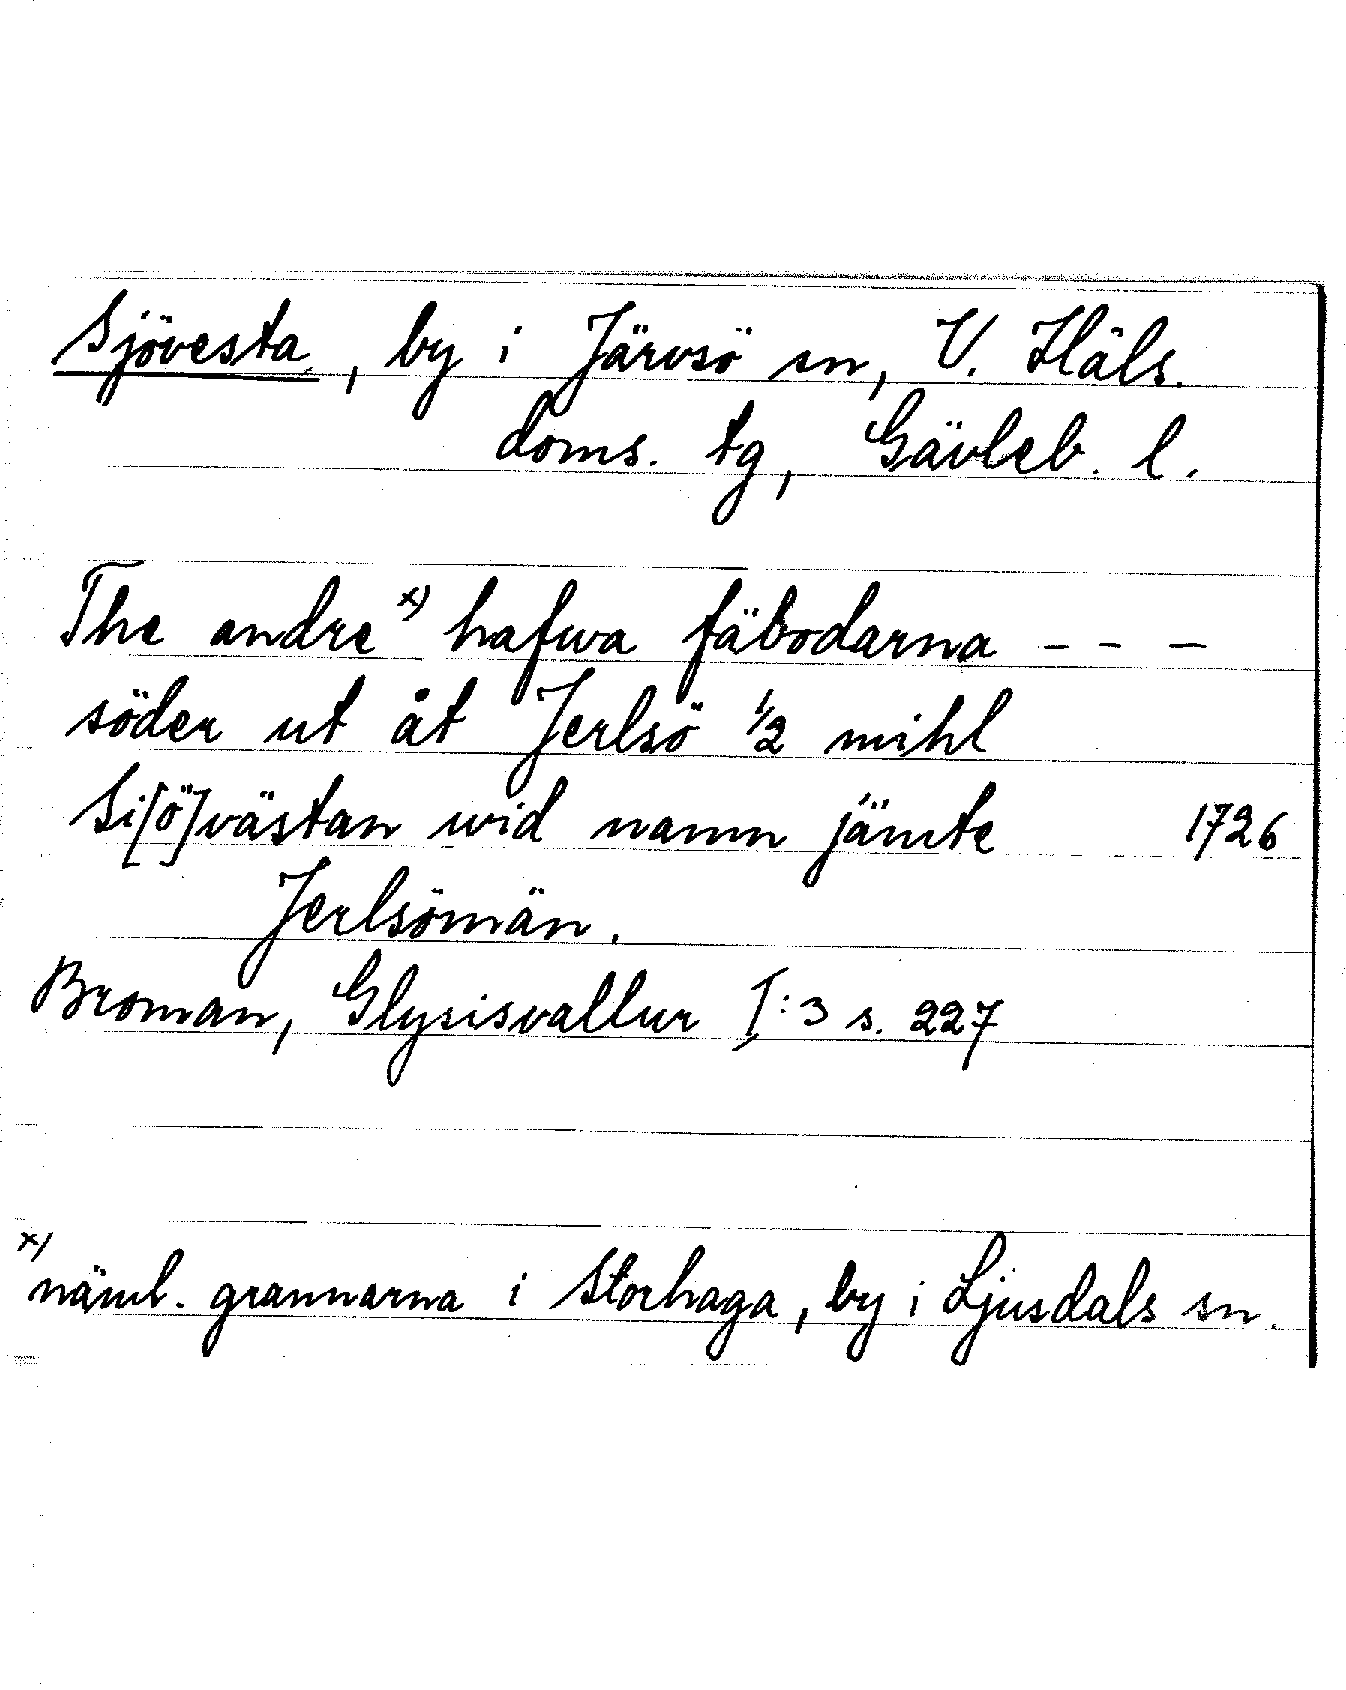 Sjövesta, by i Järvsö sn, V. Häls.
doms. tg, Gävleb. l.
The andre x) hafwa fäbodarna - - -
söder ut åt Jerlsö 1/2 mihl
Si[ö]västan wid namn jämte 1726
Jerlsömän.
Broman, Glysisvallur I:3 s. 227
x) näml. grannarna i Storhaga, by i Ljusdals sn.